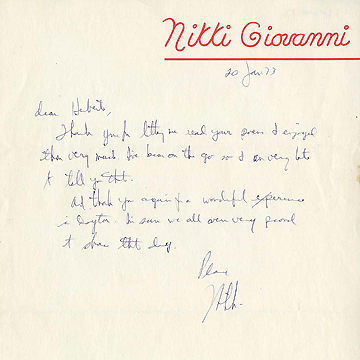 Nikki Giovanni
20 Jan 73
dear Herbert,
Thank you for letting me read your poems. I enjoyed
them very much. I've been on the go so I am very late
to tell you that.
And thank you again for a wonderful experience
in Dayton. I'm sure we all were very proud
to share that day.
Peace
Nikki